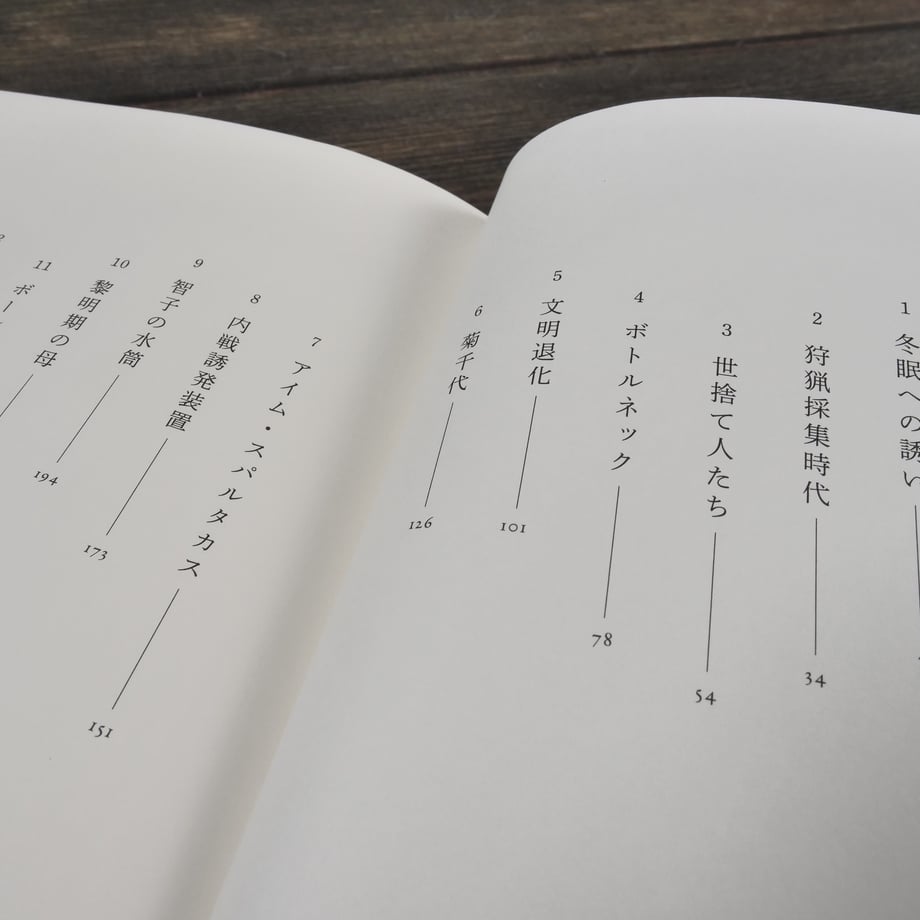 1 冬眠への誘い
2 狩猟採集時代 34
3 世捨て人たち 54
4 ボトルネック 78
5 文明退化 101
6 菊千代 126
7 アイム・スパルタカス 151
8 内戦誘発装置 173
9 智子の水筒 194
10 黎明期の母
11 ボー